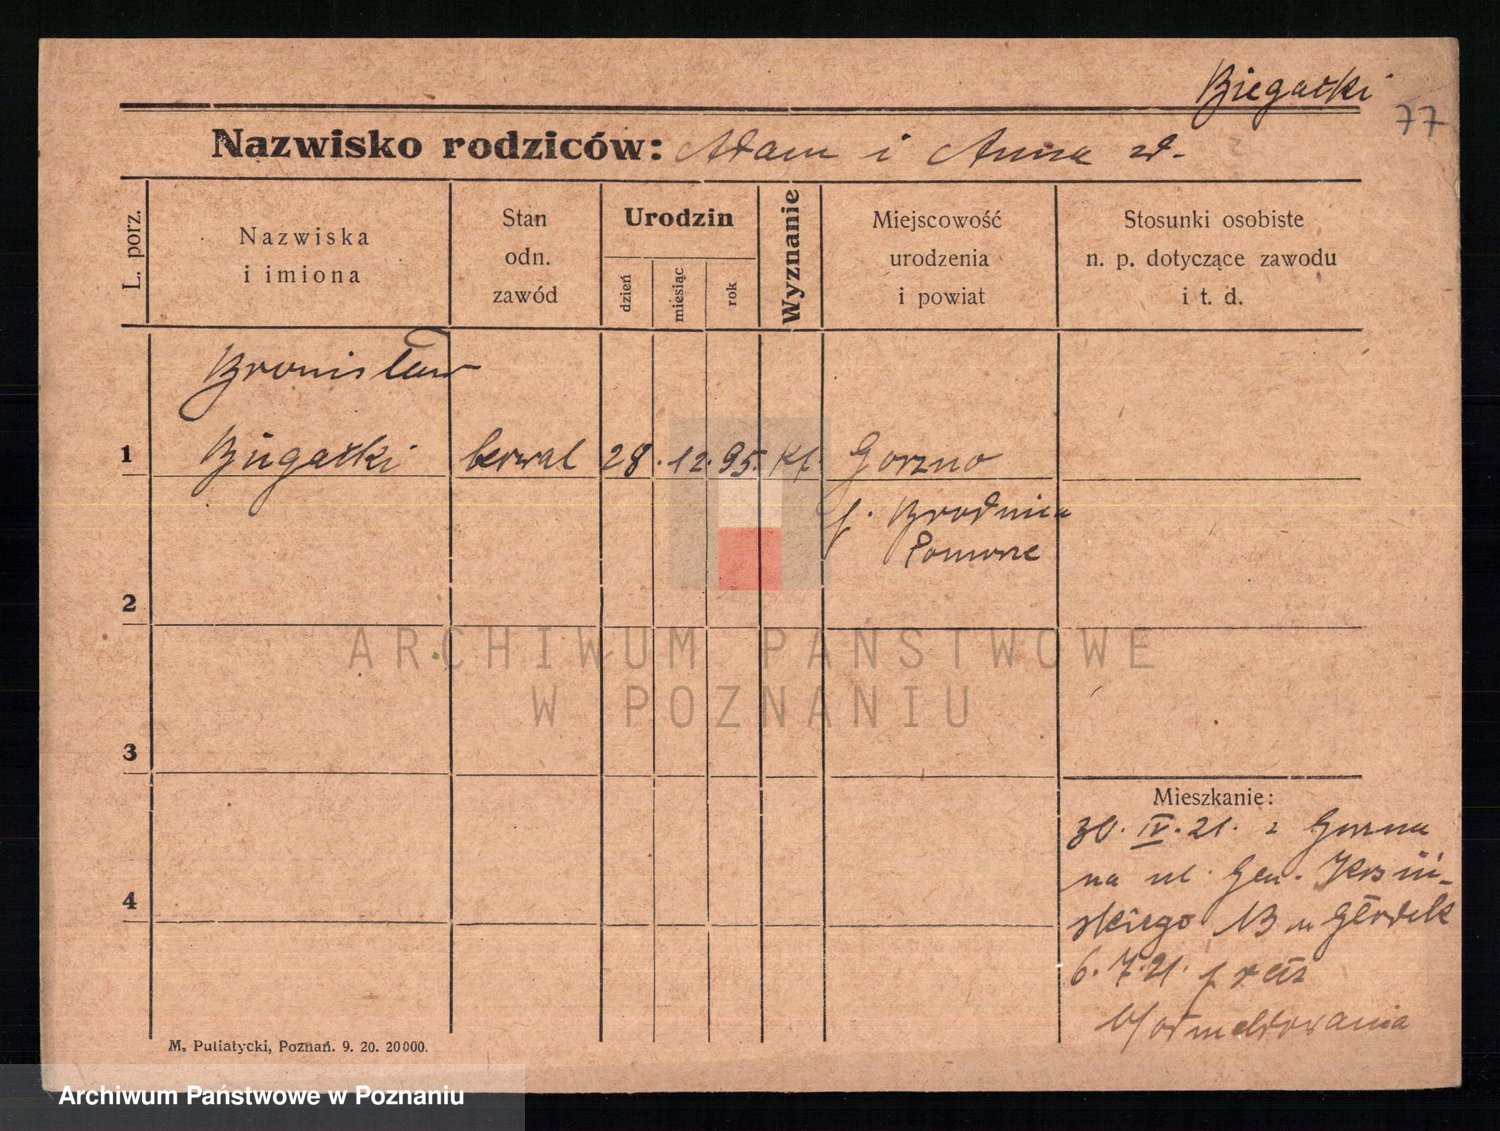 Biegałki
77
Nazwisko rodziców: Adam i Anna zd.
L. porz.
Nazwiska
i imiona
Stan
odn.
zawód
Urodzin
dzień
miesiąc
rok
Wyznanie
Miejscowość
urodzenia
i powiat
Stosunki osobiste
n. p. dotyczące zawodu
i t. d.
Bronisław
1 Biegałki 28. 12. 95. kt. Gorzno
p. Brodnica
Pomorze
2
3
4
Mieszkanie:
30. IV. 21. z Gorzna
na ul. Gen.
skiego 13
6. 7. 21.
b/odmeldowania
M. Putiatycki, Poznań. 9. 20. 20000.
ARCHIWUM PAŃSTWOWE
W POZNANIU
Archiwum Państwowe w Poznaniu